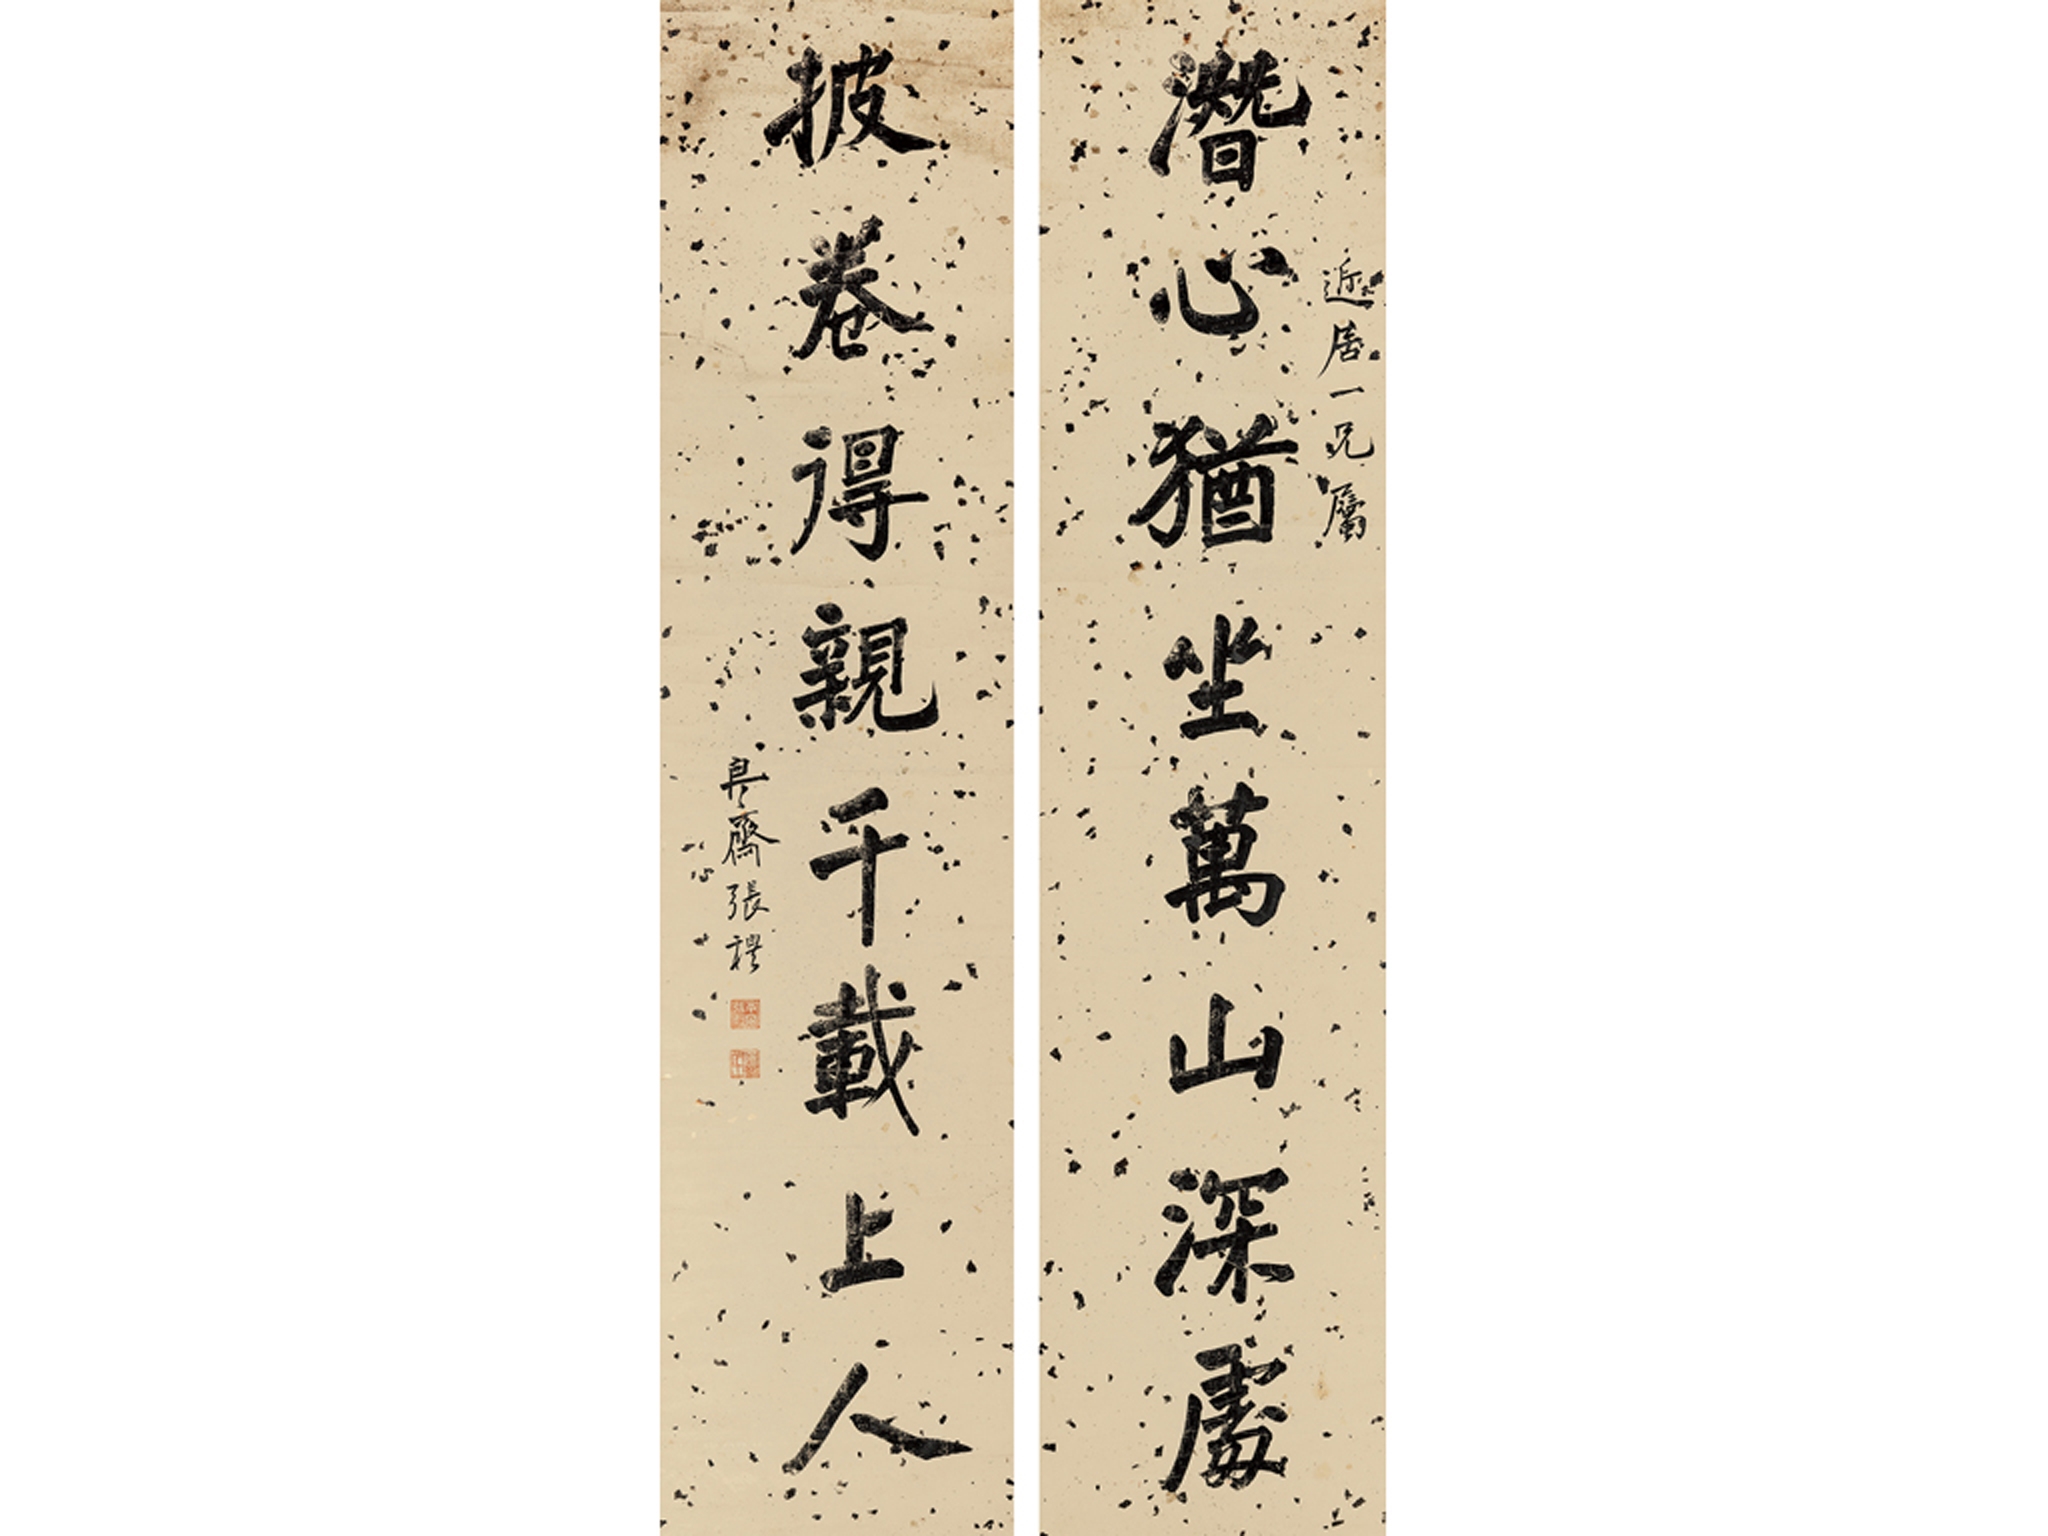 近居一兄屬
潛心猶坐萬山深處
披卷得親千載上人
㐭齋張穆